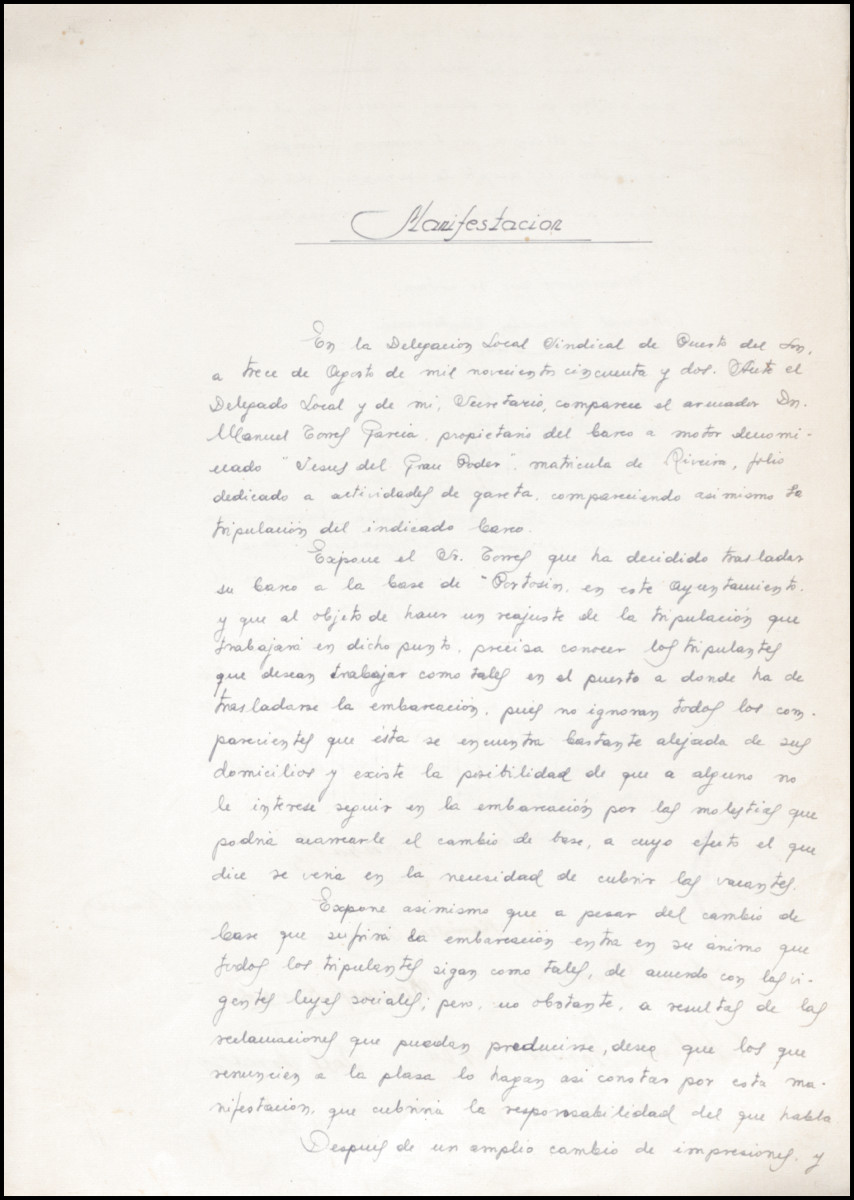 Manifestacion
En la Delegación Local Sindical de Puerto del Son,
a trece de Agosto de mil novecientos cincuenta y dos. Ante el
Delegado Local y de mi, Secretario, comparece el armador Dn.
Manuel Torres Garcia, propietario del barco a motor denomi-
nado "Jesus del Gran Poder", matricula de Riveira, folio
dedicado a actividades de gareta, compareciendo asimismo la
tripulación del indicado barco.
Expone el Sr. Torres que ha decidido trasladar
su barco a la base de "Portosin, en este Ayuntamiento.
y que al objeto de hacer un reajuste de la tripulación que
trabajará en dicho punto, precisa conocer los tripulantes
que desean trabajar como tales en el puerto a donde ha de
trasladarse la embarcación, pues no ignoran todos los com-
parecientes que ésta se encuentra bastante alejada de sus
domicilios y existe la posibilidad de que a alguno no
le interese seguir en la embarcación por las molestias que
podria acarrearle el cambio de base, a cuyo efecto el que
dice se veria en la necesidad de cubrir las vacantes.
Expone asimismo que a pesar del cambio de
base que sufrirá la embarcación entra en su ánimo que
todos los tripulantes sigan como tales, de acuerdo con las vi-
gentes leyes sociales; pero, no obstante, a resultas de las
reclamaciones que puedan producirse, desea que los que
renuncien a la plasa lo hagan asi constar por esta ma-
nifestación, que cubriria la responsabilidad del que habla
Después de un amplio cambio de impresiones, y